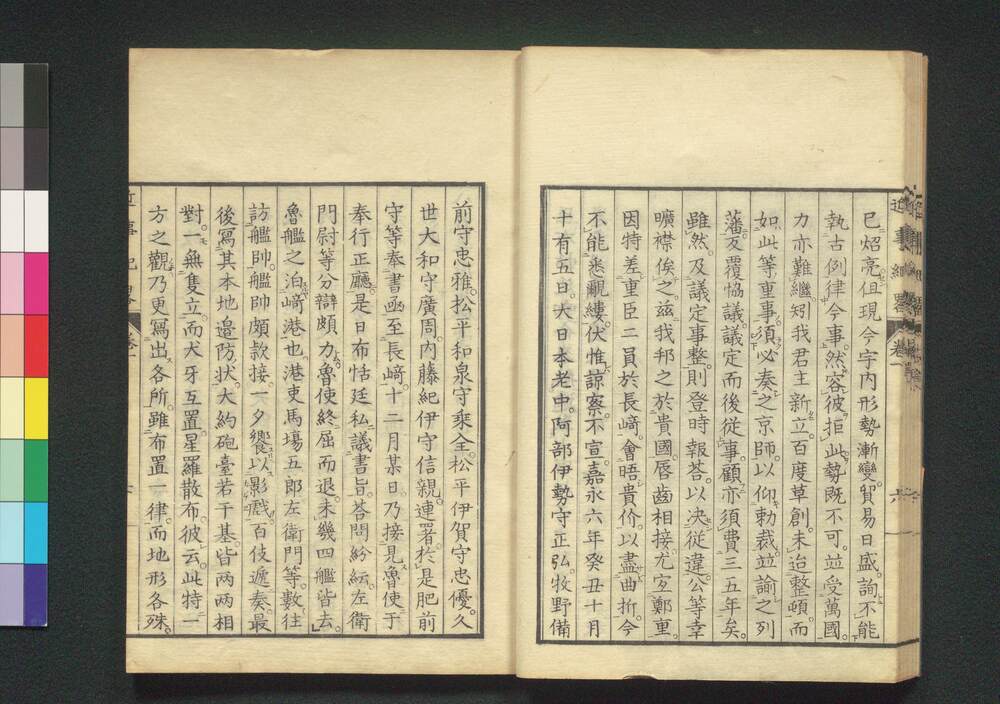 已炤亮但現今宇内形勢漸變貿易日盛詢不能
執古例律今事然容彼拒此勢既不可並受萬國
力亦難繼矧我君主新立百度草創未迨整頓而
如此等重事須必奏之京師以仰勅裁並諭之列
藩反覆恊議議定而後從事顧亦須費三五年矣
雖然及議定事整則登時報荅以决從違公等幸
曠襟俟之茲我邦之於貴國唇齒相接尤宜鄭重
因特差重臣二員於長﨑會晤貴价以盡曲折今
不能悉覼縷伏惟諒察不宣嘉永六年癸丑十月
十有五日大日本老中阿部伊勢守正弘牧野備
前守忠雅松平和泉守乘全松平伊賀守忠優久
世大和守廣周内藤紀伊守信親連署於是肥前
守等奉書函至長﨑十二月某日乃接見魯使于
奉行正廳是日布恬廷私議書旨荅問紛紜左衛
門尉等分辯頗力魯使終屈而退未幾四艦皆去
魯艦之泊﨑港也港吏馬場五郎左衛門等數往
訪艦帥艦帥頗款接一夕饗以影戲百伎遞奏最
後寫其本地邉防状大約砲臺若干基皆两两相
對一無隻立而犬牙互置星羅散布彼云此特一
方之觀乃更寫出各所雖布置一律而地形各殊